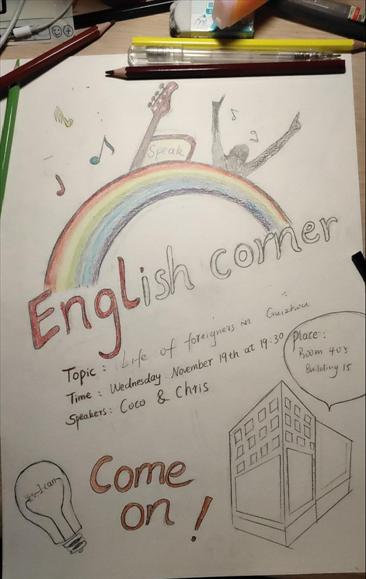 Speak
English corner
Topic: Life of foreigners in Guizhou
Time: Wednesday November 19th at 19:30
Speakers: Coco & Chris
Place:
Room 403
Building 15
Yes, I can
Come
on!